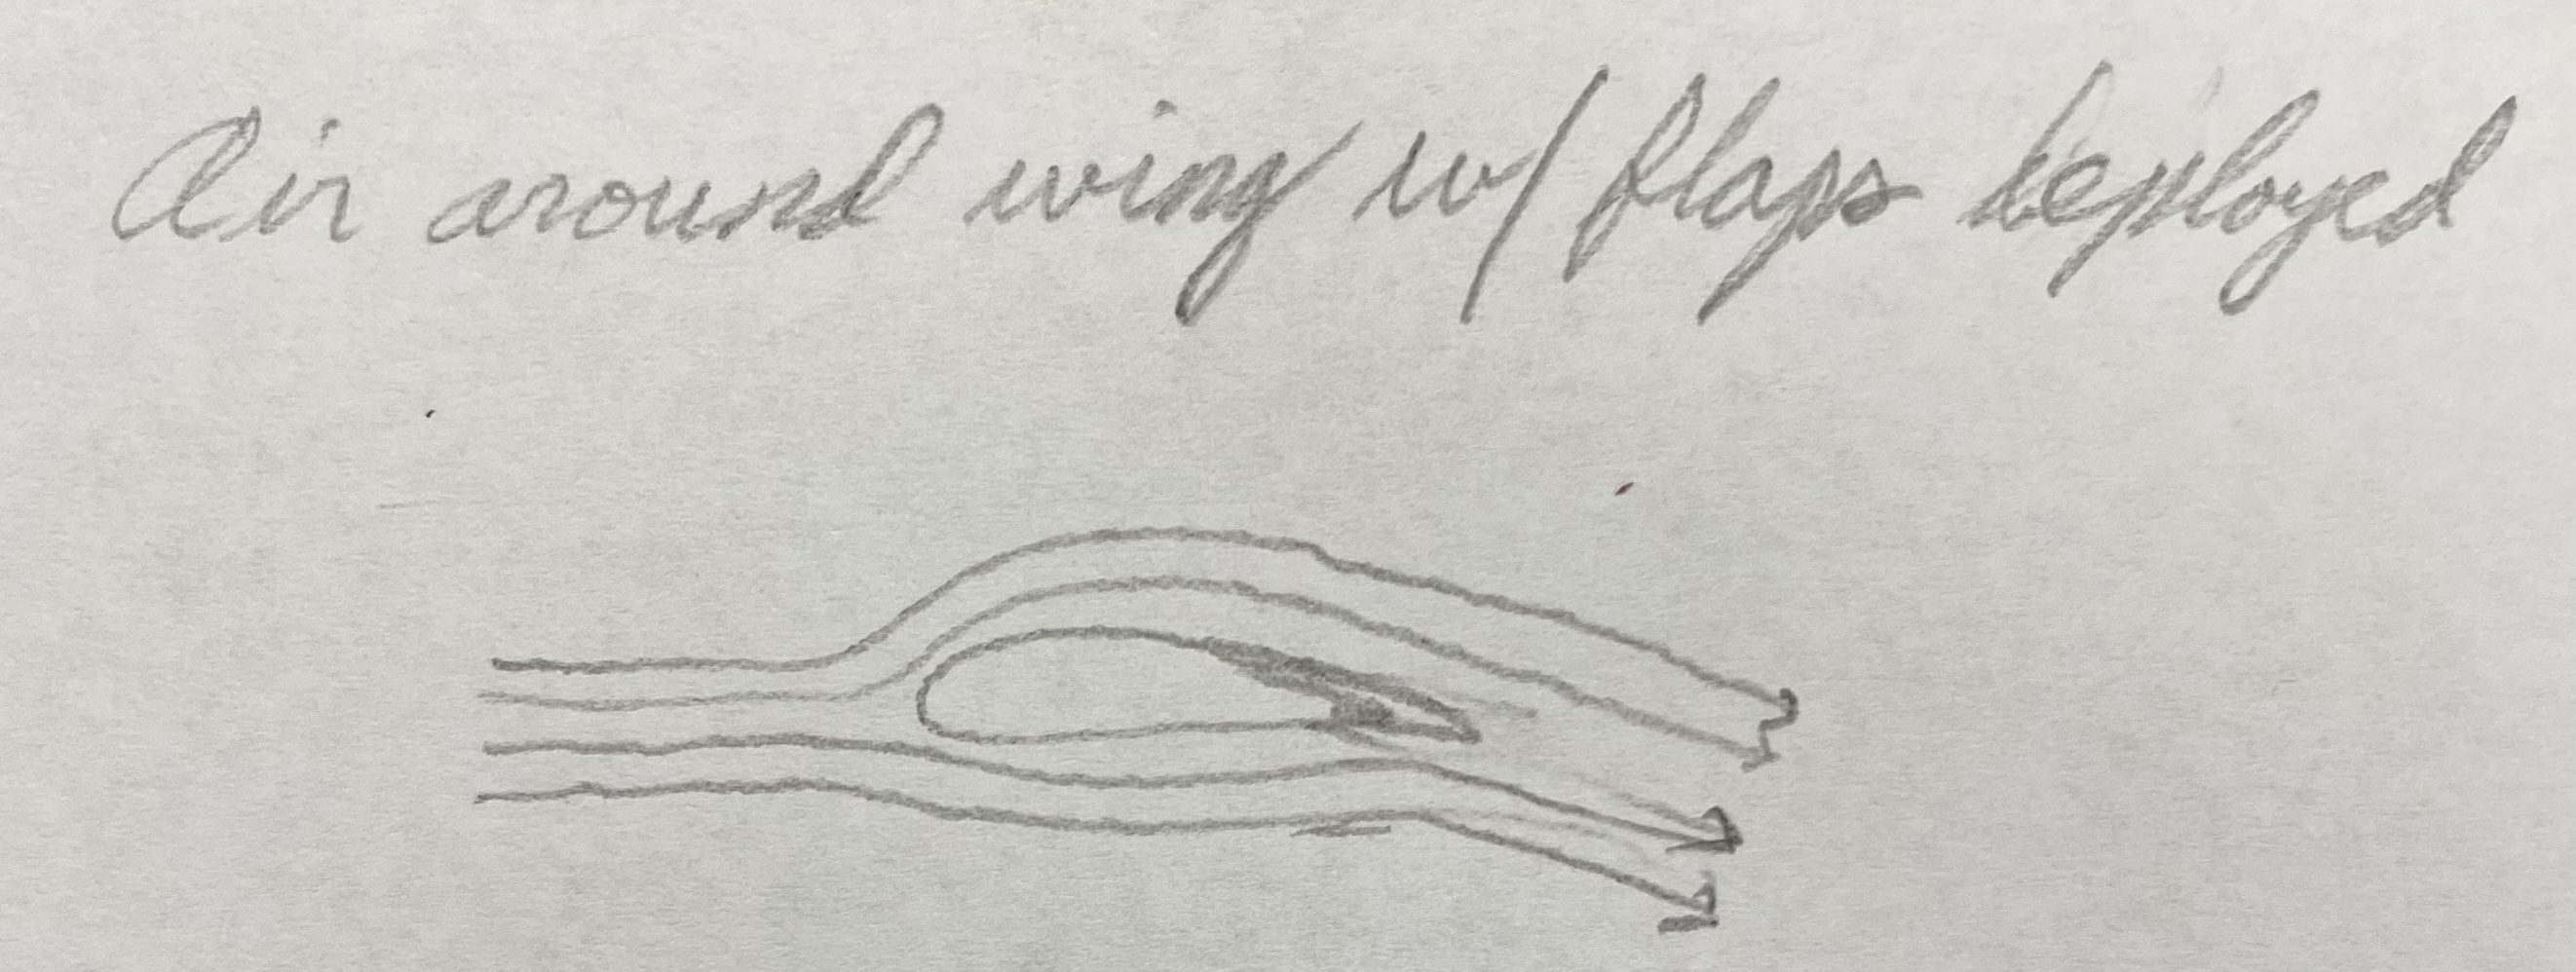 Air around wing w/ flaps deployed